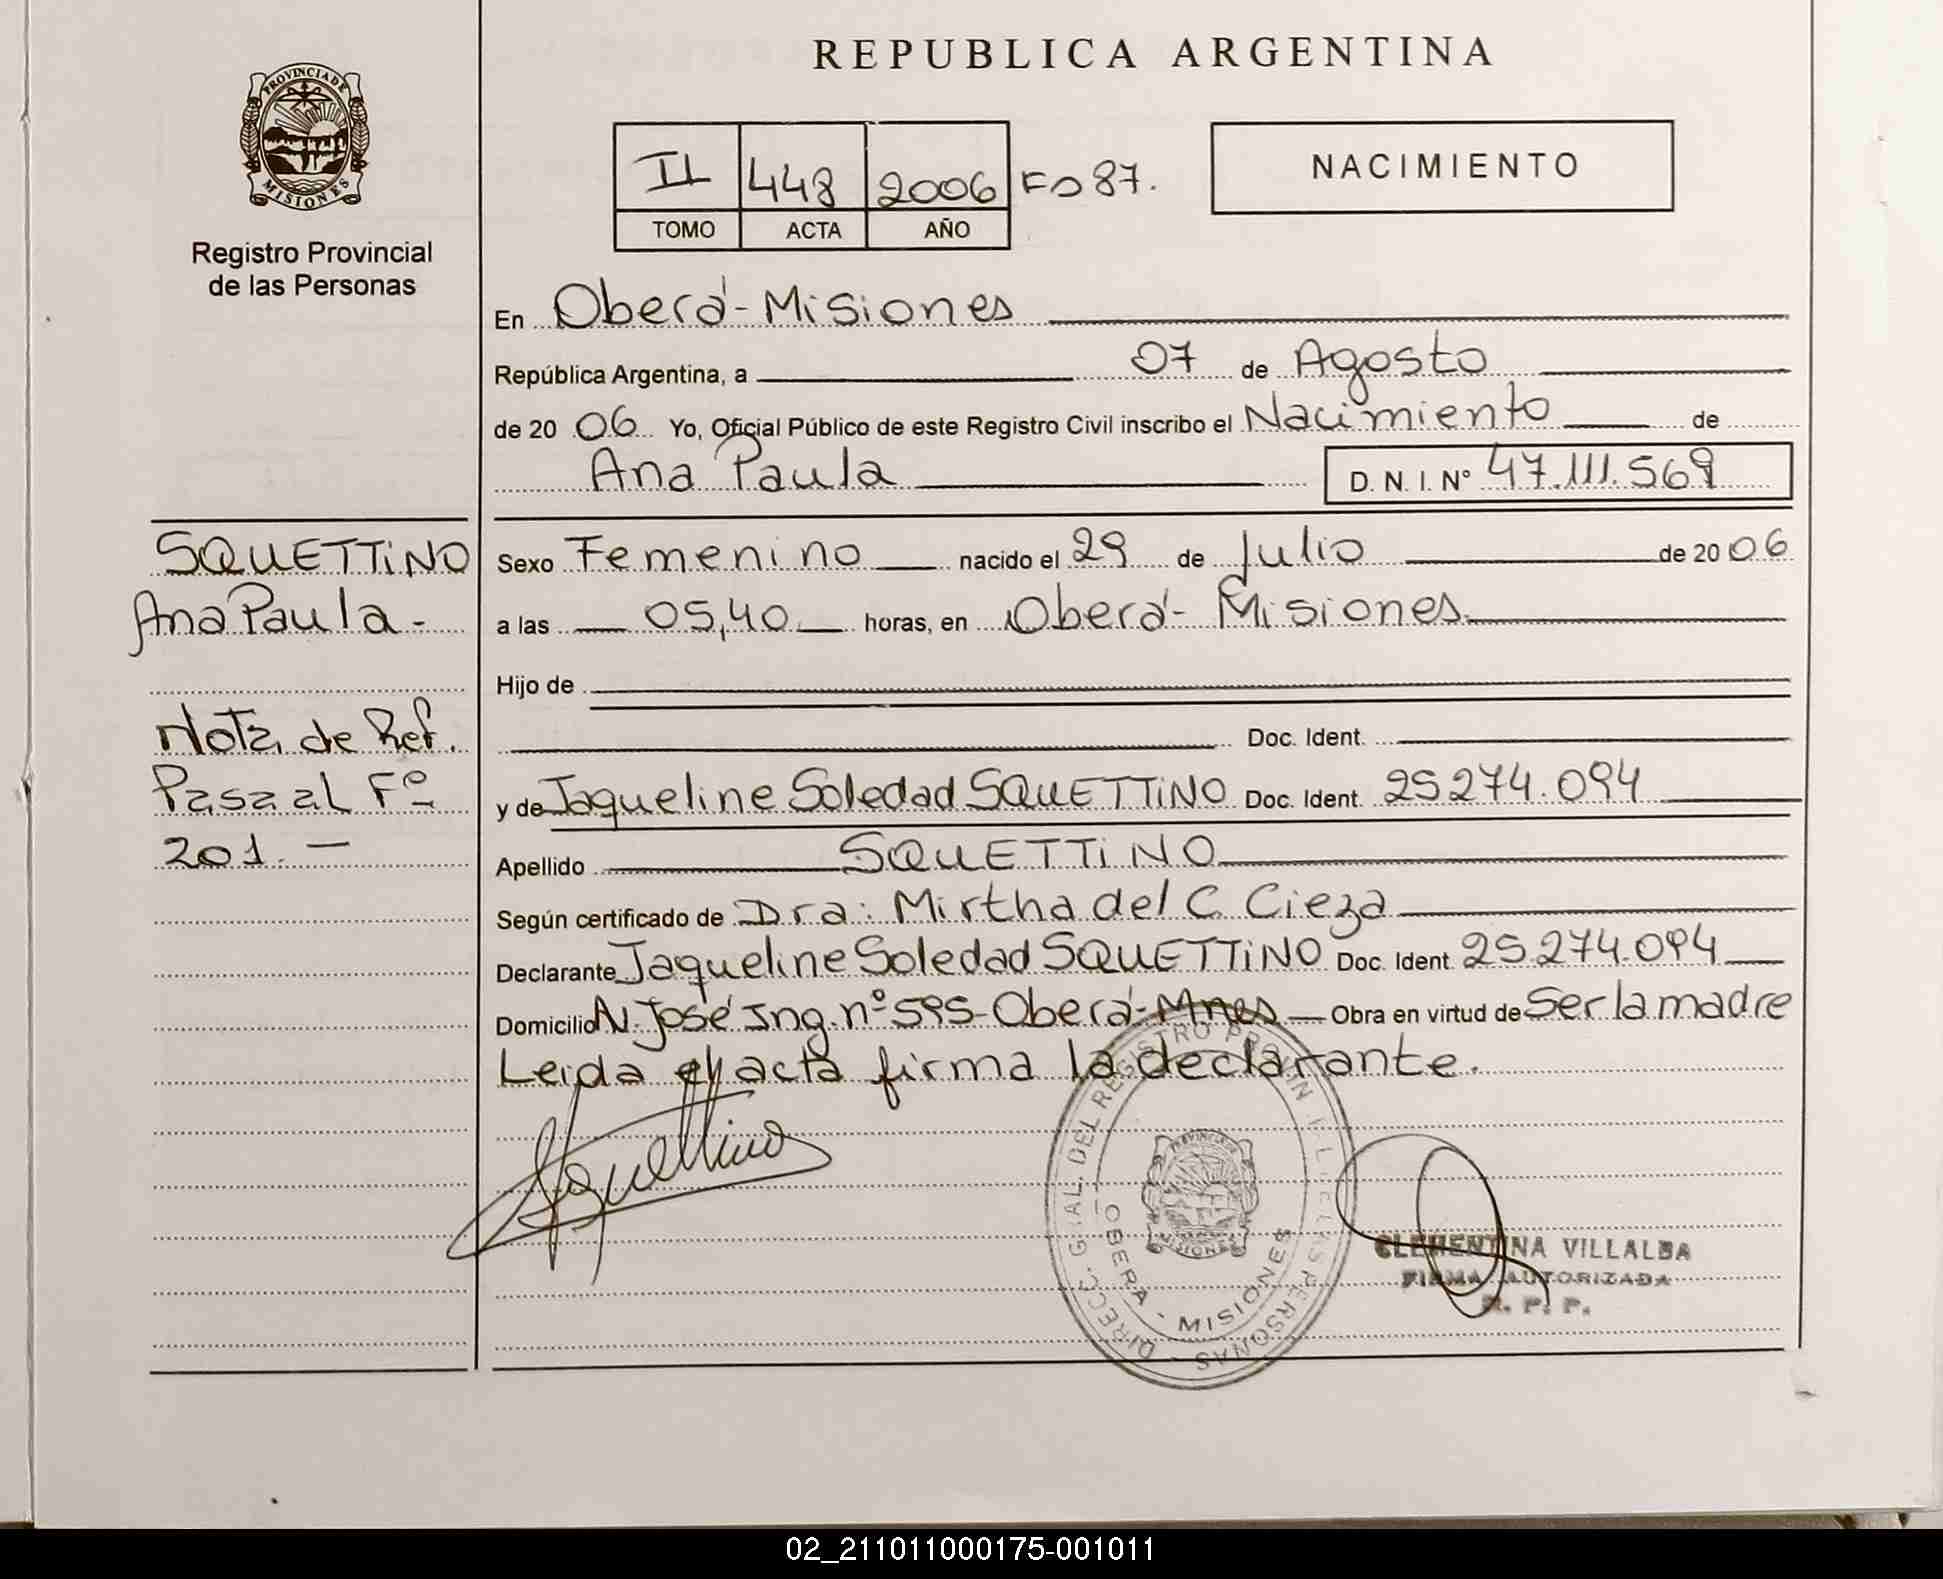 REPUBLICA ARGENTINA
PROVINCIA DE
MISIONES
Registro Provincial
de las Personas
II 448 2006 Fo 87.
TOMO ACTA AÑO
NACIMIENTO
En Oberá - Misiones
República Argentina, a 07 de Agosto
de 20 06 Yo, Oficial Público de este Registro Civil inscribo el Nacimiento de
Ana Paula D. N. I. Nº 47.111.569
SQUETTiNO
Ana Paula -
Sexo Femenino nacido el 29 de Julio de 20 06
a las 05,40 horas, en Oberá - Misiones
Hijo de
Doc. Ident.
Nota de Ref.
Pasa al Fº
201. -
y de Jaqueline Soledad SQUETTiNO Doc. Ident. 25 274.094
Apellido SQUETTiNO
Según certificado de Dra: Mirtha del C. Cieza
Declarante Jaqueline Soledad SQUETTiNO Doc. Ident. 25.274.094
Domicilio Av. José Ing. nº 595 - Oberá - Mnes Obra en virtud de Ser la madre
Leida el acta firma la declarante.
Squettino
DIRECC. GRAL. DEL REGISTRO PROVINCIAL DE LAS PERSONAS
OBERA - MISIONES
PROVINCIA DE
MISIONES
CLEMENTINA VILLALBA
FIRMA AUTORIZADA
R. P. P.
02_211011000175-001011